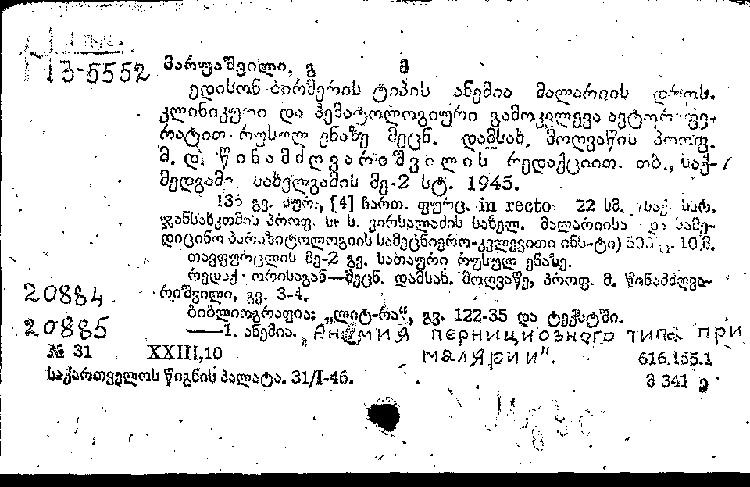 13-5552 მარუაშვილი, გ მ
ედისონ-ბირმერის ტიპის ანემია მალარიის დროს.
კლინიკური და ჰემატოლოგიური გამოკვლევა ავტორეფე-
რატით რუსულ ენაზე მეცნ. დამსახ. მოღვაწის პროფ.
მ. დ. წინამძღვარიშვილის რედაქციით. თბ., საქ-
მედგამი. სახელგამის მე-2 სტ. 1945.
136 გვ. სურ., [4] ჩართ. ფურც. in recto 22 სმ. (საქ. სსრ.
ჯანსახკომის პროფ. ს. ს. ვირსალაძის სახელ. მალარიისა და სამე-
დიცინო პარაზიტოლოგიის სამეცნიერო-კვლევითი ინს-ტი) 10 მ.
თავფურცლის მე-2 გვ. სათაური რუსულ ენაზე.
რედაქტორისაგან—მეცნ. დამსახ. მოღვაწე, პროფ. მ. წინამძღვა-
20884 რიშვილი, გვ. 3-4.
ბიბლიოგრაფია: „ლიტ-რა“, გვ. 122-35 და ტექსტში.
20885 —1. ანემია. „Анемия пернициозного типа при
№ 31 XXIII,10 малярии". 616.155.1
საქართველოს წიგნის პალატა. 31/I-46. მ 341 ე